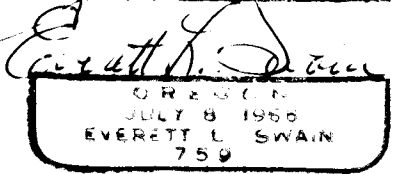 Everett L. Swain
OREGON
JULY 8 1966
EVERETT L SWAIN
759